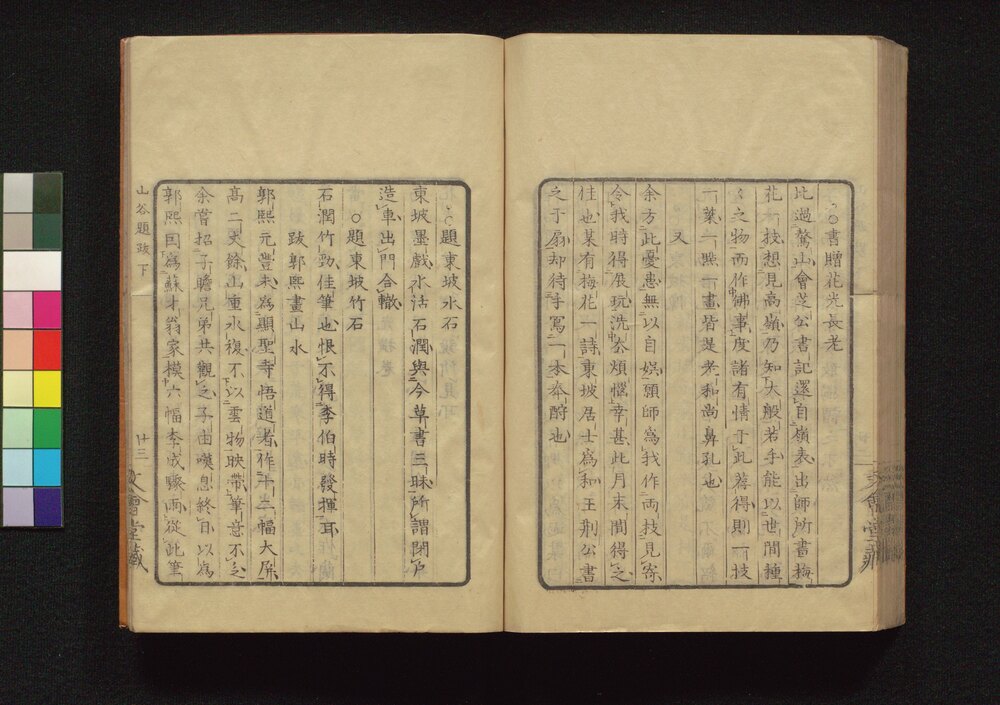 ○書贈花光長老
比過鷲山會芝公書記還自嶺表出師所畫梅
花一枝想見高嶺乃知大般若手能以世間種
〻之物而作佛事度諸有情于此薦得則一枝
一葉一照一畫皆是老和尚鼻孔也
又
余方此憂患無以自娯頭師爲我作両枝見寄
令我時得展玩洗去煩惱幸甚此月末間得之
佳也某有梅花一詩東坡居士爲和王荆公書
之于扇却待手寫一本奉酧也
○題東坡水石
東坡墨戲水活石潤與今草書三昧所謂閉戸
造車出門合轍
○題東坡竹石
石潤竹勁佳筆也恨不得李伯時發揮耳
跋郭熙畫山水
郭熙元豊末爲顯聖寺悟道者作十二幅大屏
髙二丈餘山重水複不以雲物映帶筆意不乏
余嘗招子瞻兄弟共觀之子由嘆息終日以爲
郭熙因爲蘇才翁家模六幅李成驟雨從此筆
山谷題跋 下
廿三
文會堂藏
文會堂藏